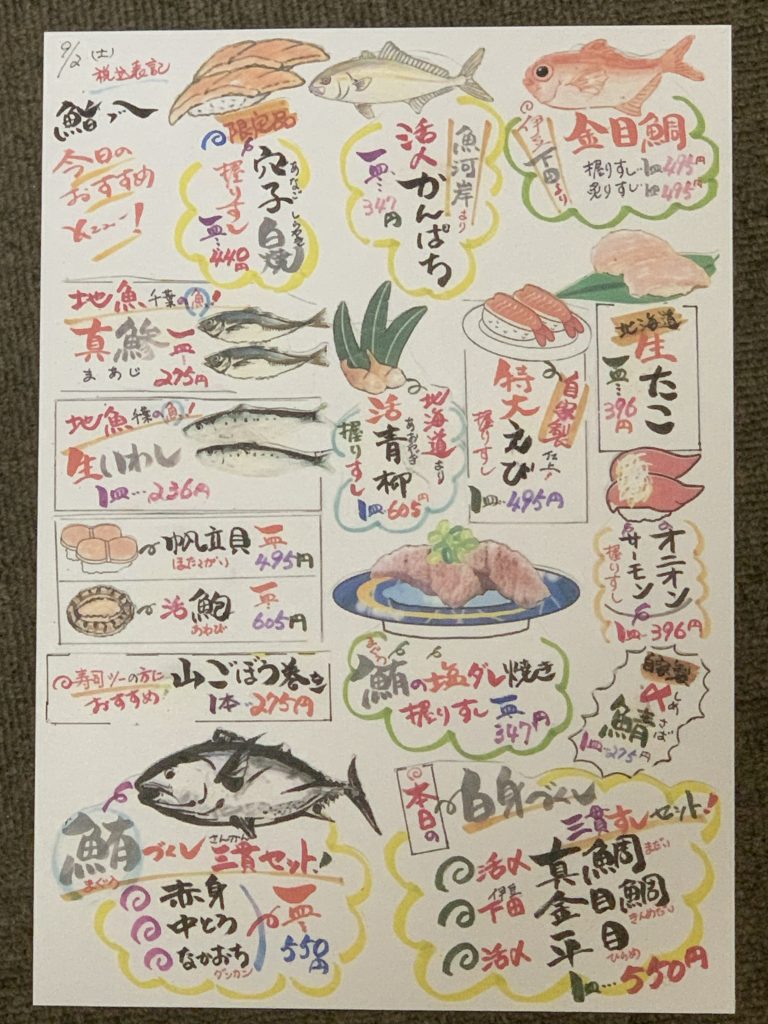 9/2(土)
税込表記
鮨一八
今日の
おすすめ
メニュー!
限定品
穴子白焼
あなごしらやき
握りずし
一皿…440円
魚河岸より
活〆かんぱち
一皿…347円
伊豆下田より
金目鯛
握りずし…1皿495円
炙りずし…1皿495円
地魚千葉の魚!
真鯵
まあじ
一皿…275円
地魚千葉の魚!
生いわし
1皿…236円
北海道より
活青柳
あおやぎ
握りずし
1皿…605円
自家製仕上!
特大えび
握りずし
1皿…495円
北海道
生たこ
一皿…396円
帆立貝
ほたてがい
一皿…495円
活鮑
あわび
一皿…605円
オニオン
サーモン
握りずし
1皿…396円
寿司ツーの方に
おすすめ!
山ごぼう巻き
1本…275円
まぐろ
鮪の塩ダレ焼き
握りずし一皿…347円
自家製
〆鯖
しめさば
1皿…275円
鮪づくし三貫セット!
まぐろ
さんかん
赤身
中とろ
なかおち
グンカン
一皿…550円
本日の
白身づくし
三貫ずしセット!
活〆真鯛
まだい
伊豆下田金目鯛
きんめだい
活〆平目
ひらめ
1皿…550円